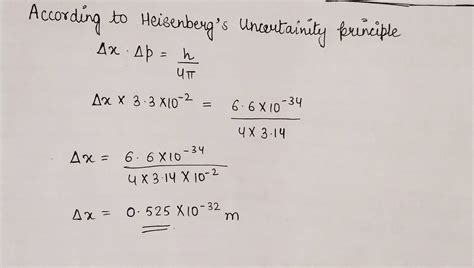 According to Heisenberg's Uncertainity principle
Δx . Δp = h/4π
Δx × 3.3 X10^-2 = 6.6 X10^-34/4 X 3.14
Δx = 6.6 X10^-34/4 X 3.14 X 10^-2
Δx = 0.525 X10^-32 m